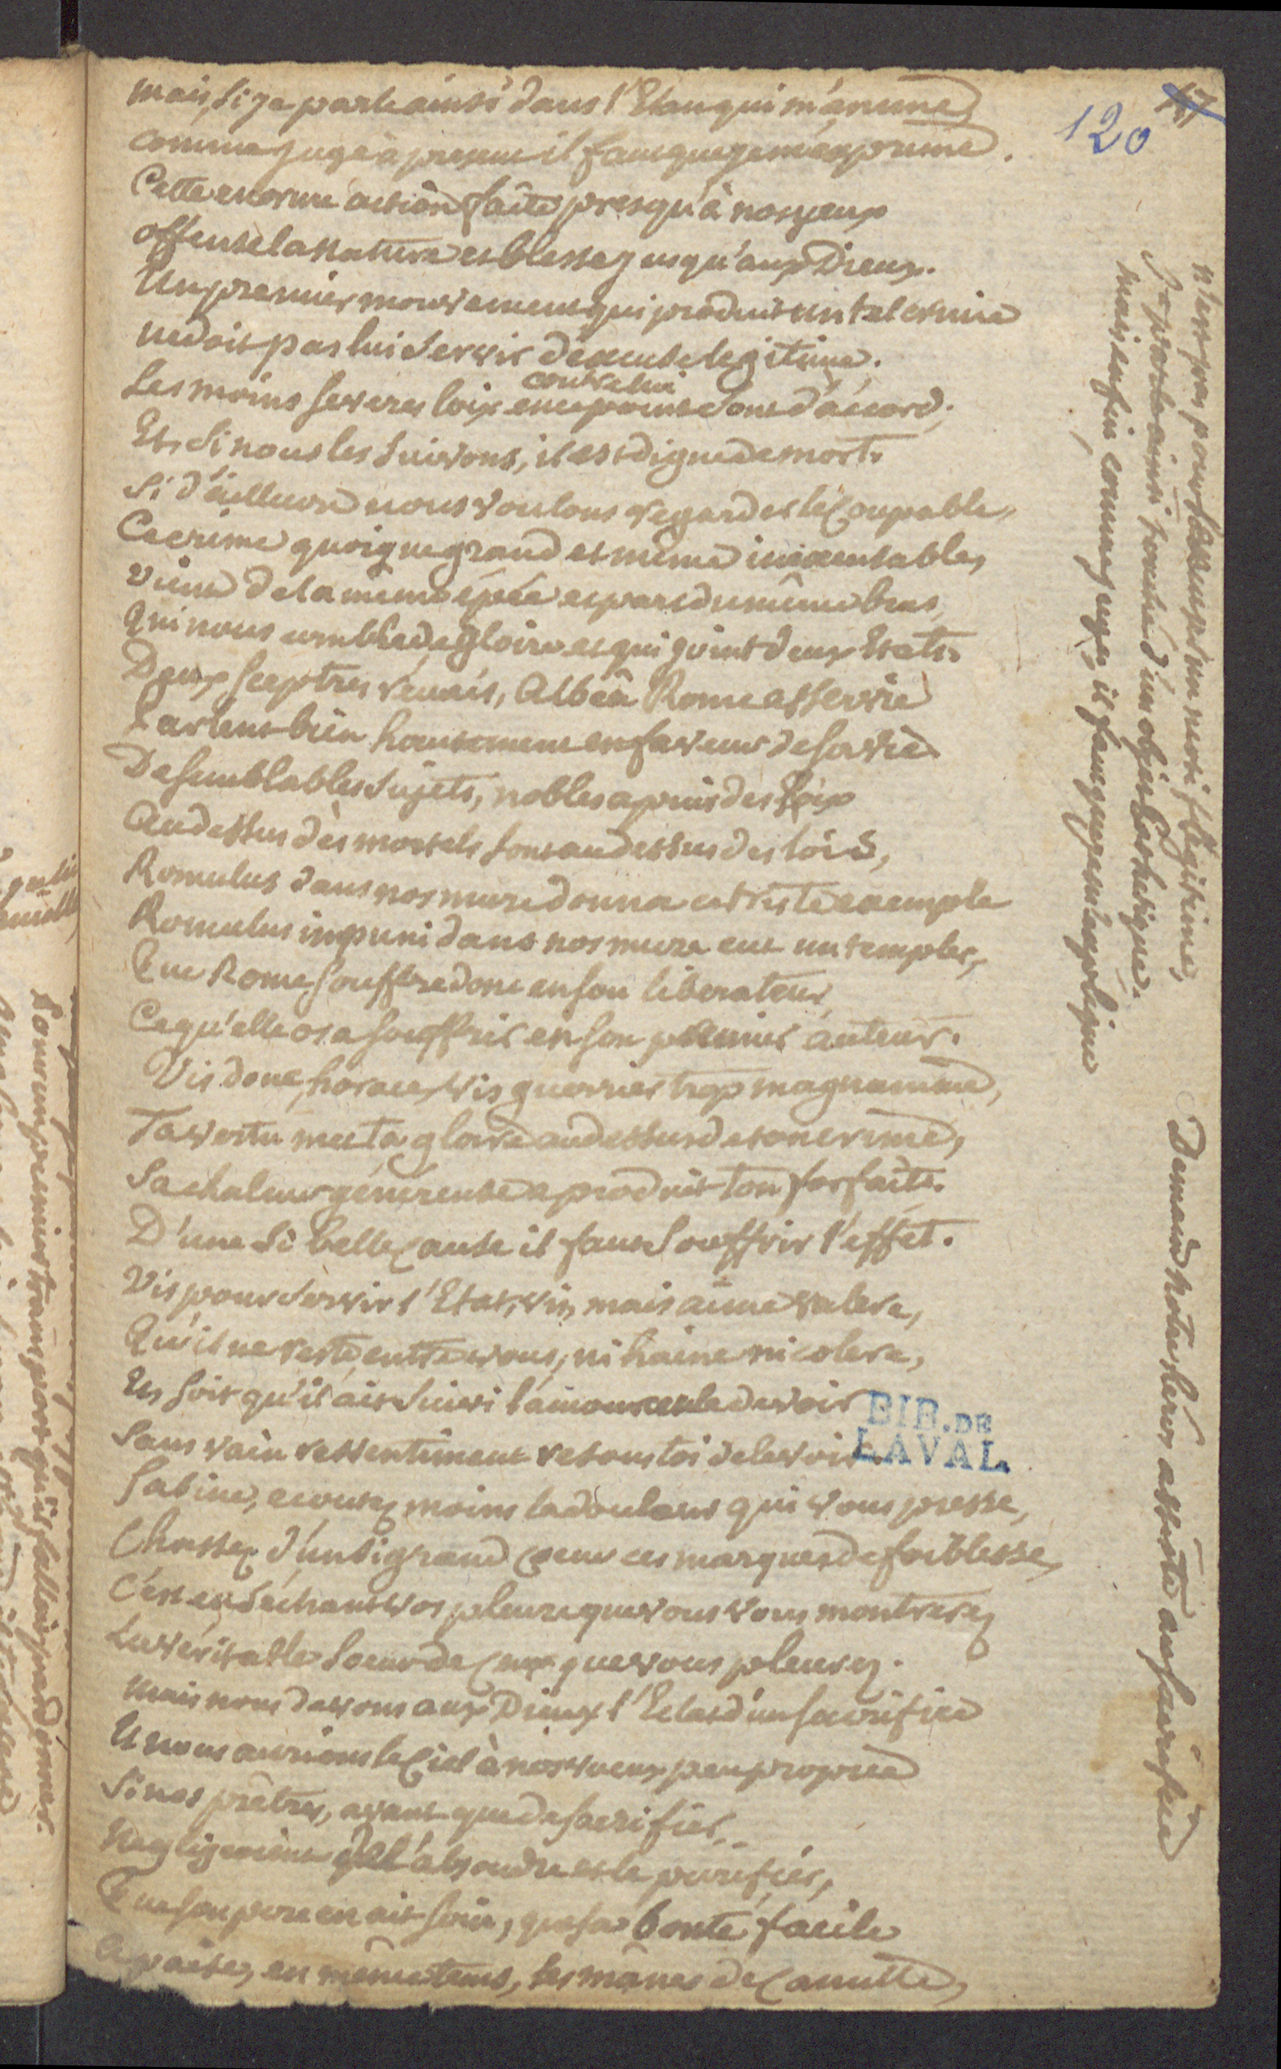 120
mais, si je parle ainsi dans l'Elan qui m'anime
comme juge à present il faut que je m'exprime.
Cette enorme action faite presqu'à nos yeux
offense la nature et blesse jusqu'aux Dieux.
Un premier mouvement qui produit un tel crime
ne doit pas lui servir d'excuse legitime.
contre lui
Les moins severes loix en ce point sont d'accord,
Et, si nous les suivons, il est digne de mort.
Si d'ailleurs nous voulons regarder le Coupable,
Ce crime quoique grand et même inexcusable,
vient de la même épée et part du même bras
qui nous comble de gloire et qui joint deux Etats.
Deux sceptres réunis, Albe à Rome asservie
Parlent bien hautement en faveur de sa vie
De semblables sujets, nobles apuis des Rois
Au dessus des mortels sont au dessus des lois,
Romulus dans nos murs donna ce triste exemple
Romulus impuni dans nos murs eut un temple,
Que Rome souffre donc en son liberateur
Ce qu'elle osa souffrir en son premier auteur.
Vis donc, horace, vis guerrier trop magnanime,
Ta vertu met ta gloire au dessus de ton crime,
Sa chaleur généreuse a produit ton forfait.
D'une si belle Cause il faut souffrir l'effet.
Vis pour servir l'Etat, vis, mais aime valere,
Qu'il ne reste entre vous, ni haine ni colere,
Et soit qu'il ait suivi l'amour ou le devoir
Sans vain ressentiment resous toi de le voir.
Sabine, ecoutez moins la douleur qui vous presse,
Chassez d'un si grand Coeur ces marques de foiblesse,
C'est en séchant vos pleurs que vous vous montrerez
La véritable soeur de Ceux que vous pleurez.
mais nous devons aux Dieux l'Eclat d'un sacrifice
Et nous aurions le Ciel à nos voeux peu propice
Si nos prêtres, avant que de sacrifier,
Negligeoient de l'absoudre et le purifier,
Que son pere en ait soin, que sa bonté facile
Apaise, en même tems, les mânes de Camille,
n'est pas pour l'excuser un motif légitime,
Je parle ainsi touché d'un objet pathetique.
mais enfin, comme juge, il faut que je m'explique
Demain notre heros assiste au sacrifice
BIB. DE
LAVAL.
d'un premier transport qu'il falloit pardonner.